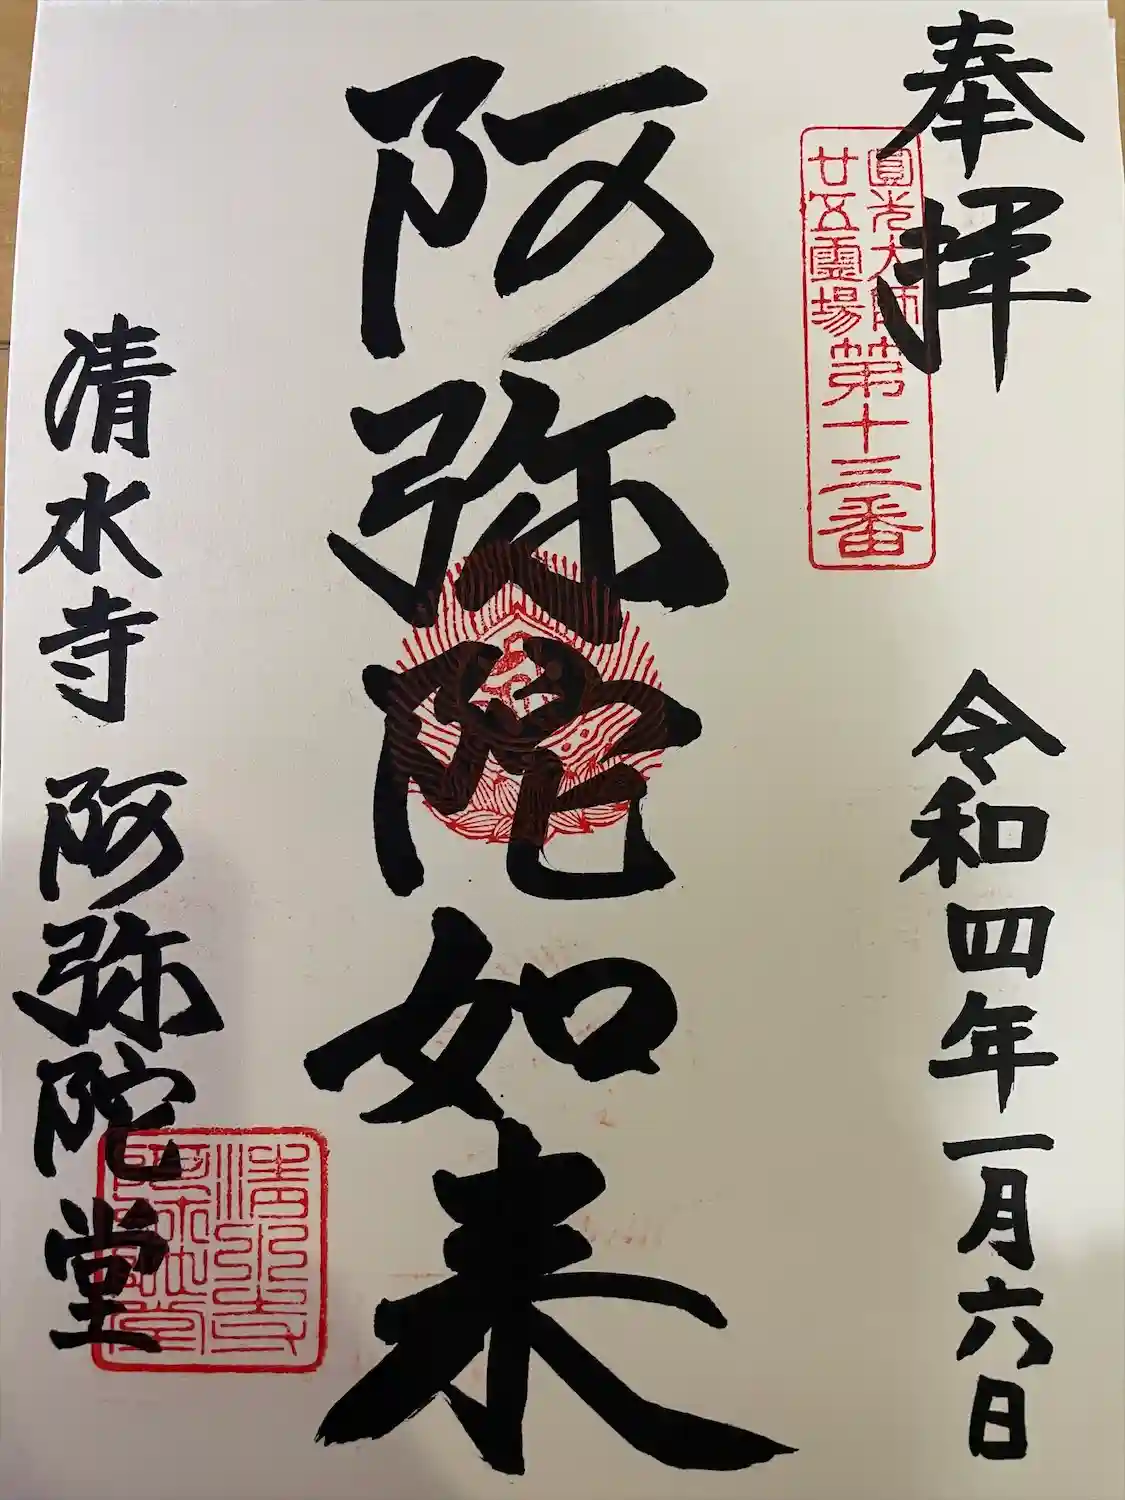 奉拝
圓光大師
廿五霊場
第十三番
令和四年一月六日
阿弥陀如来
清水寺 阿弥陀堂
清水寺
阿弥陀堂